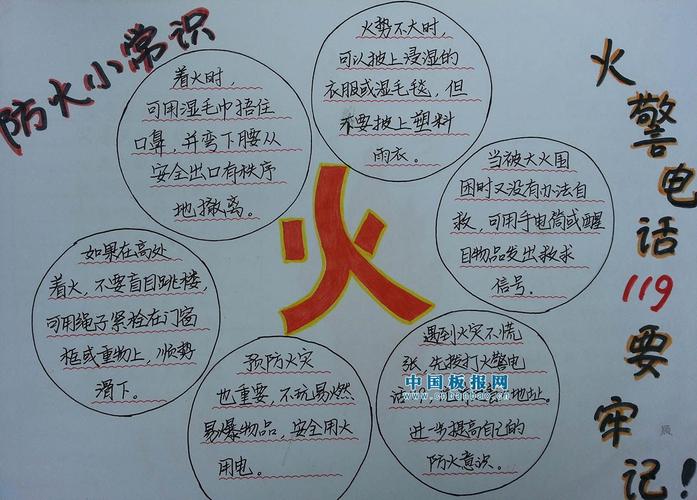 防火小常识
着火时，
可用湿毛巾捂住
口鼻，并弯下腰从
安全出口有秩序
地撤离。
火势不大时，
可以披上浸湿的
衣服或湿毛毯，但
不要披上塑料
雨衣。
当被大火围
困时又没有办法自
救，可用手电筒或醒
目物品发出救求
信号。
如果在高处
着火，不要盲目跳楼，
可用绳子紧栓在门窗
框或重物上，顺势
滑下。
预防火灾
也重要，不玩易燃
易爆物品，安全用火
用电。
遇到火灾不慌
张，先拨打火警电
话
地址。
进步提高自己的
防火意识。
火
火警电话119要牢记！
中国板报网
www.cnbanbao.cn